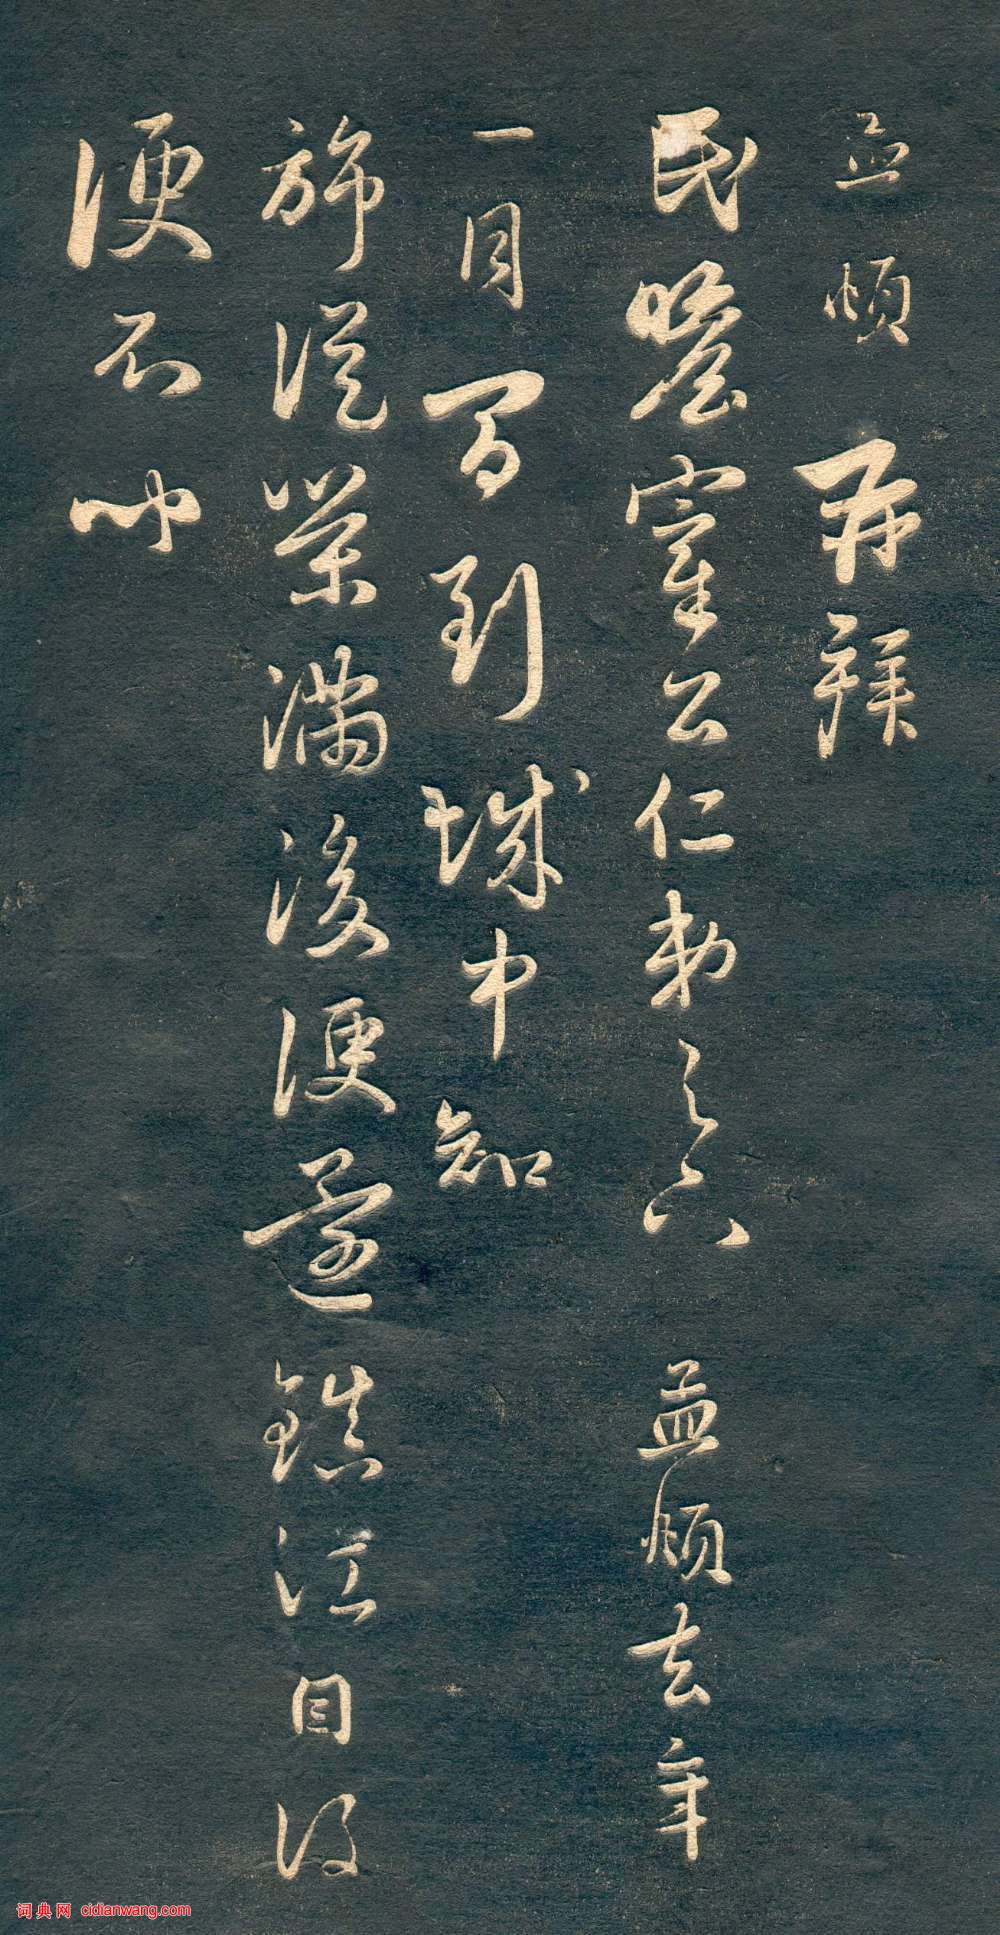 孟頫再拜
民瞻宰公仁弟足下孟頫去年
一月間到城中知
旆從榮滿後便還鎮江自後
便不聞
词典网 cidianwang.com